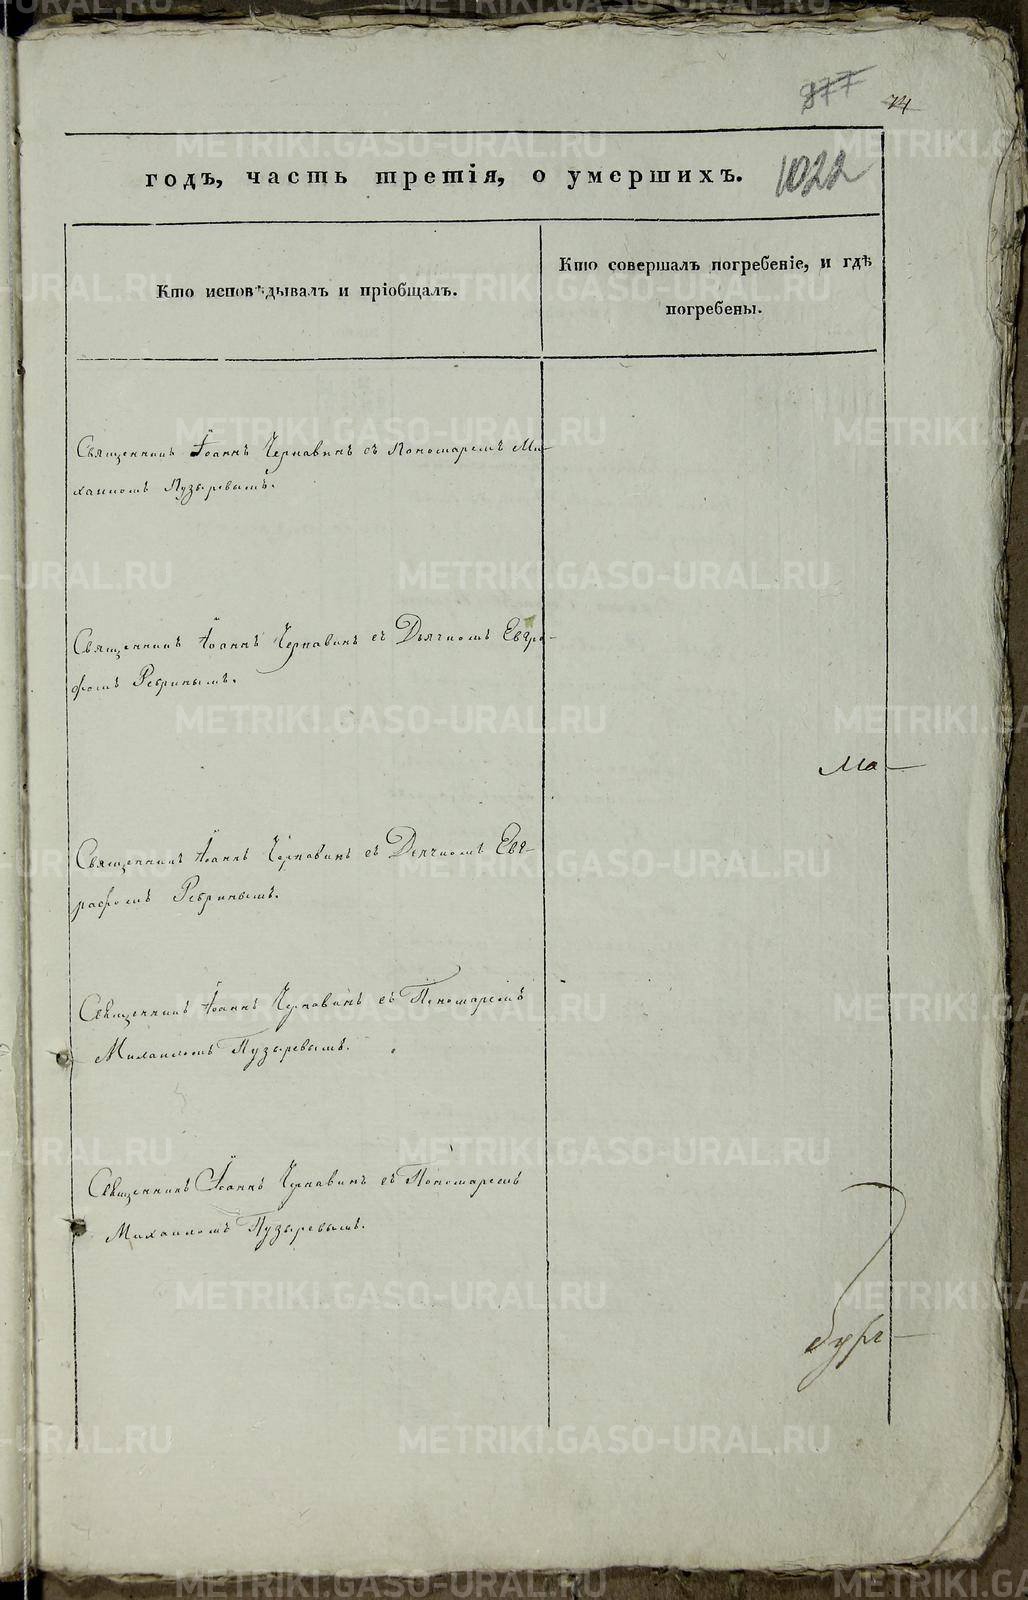 877 74
годъ, часть третія, о умершихъ. 1022
Кто исповѣдывалъ и пріобщалъ.
Кто совершалъ погребеніе, и гдѣ
погребены.
Священникъ Іоаннъ Чернавинъ съ Пономаремъ Ми-
хаиломъ Пузыревымъ.
Священникъ Іоаннъ Чернавинъ съ Дьячкомъ Евгра-
фомъ Ребринымъ.
Ма-
Священникъ Іоаннъ Чернавинъ съ Дьячкомъ Евг-
рафомъ Ребринымъ.
Священникъ Іоаннъ Чернавинъ съ Пономаремъ
Михаиломъ Пузыревымъ.
Священникъ Іоаннъ Чернавинъ съ Пономаремъ
Михаиломъ Пузыревымъ.
METRIKI.GASO-URAL.RU